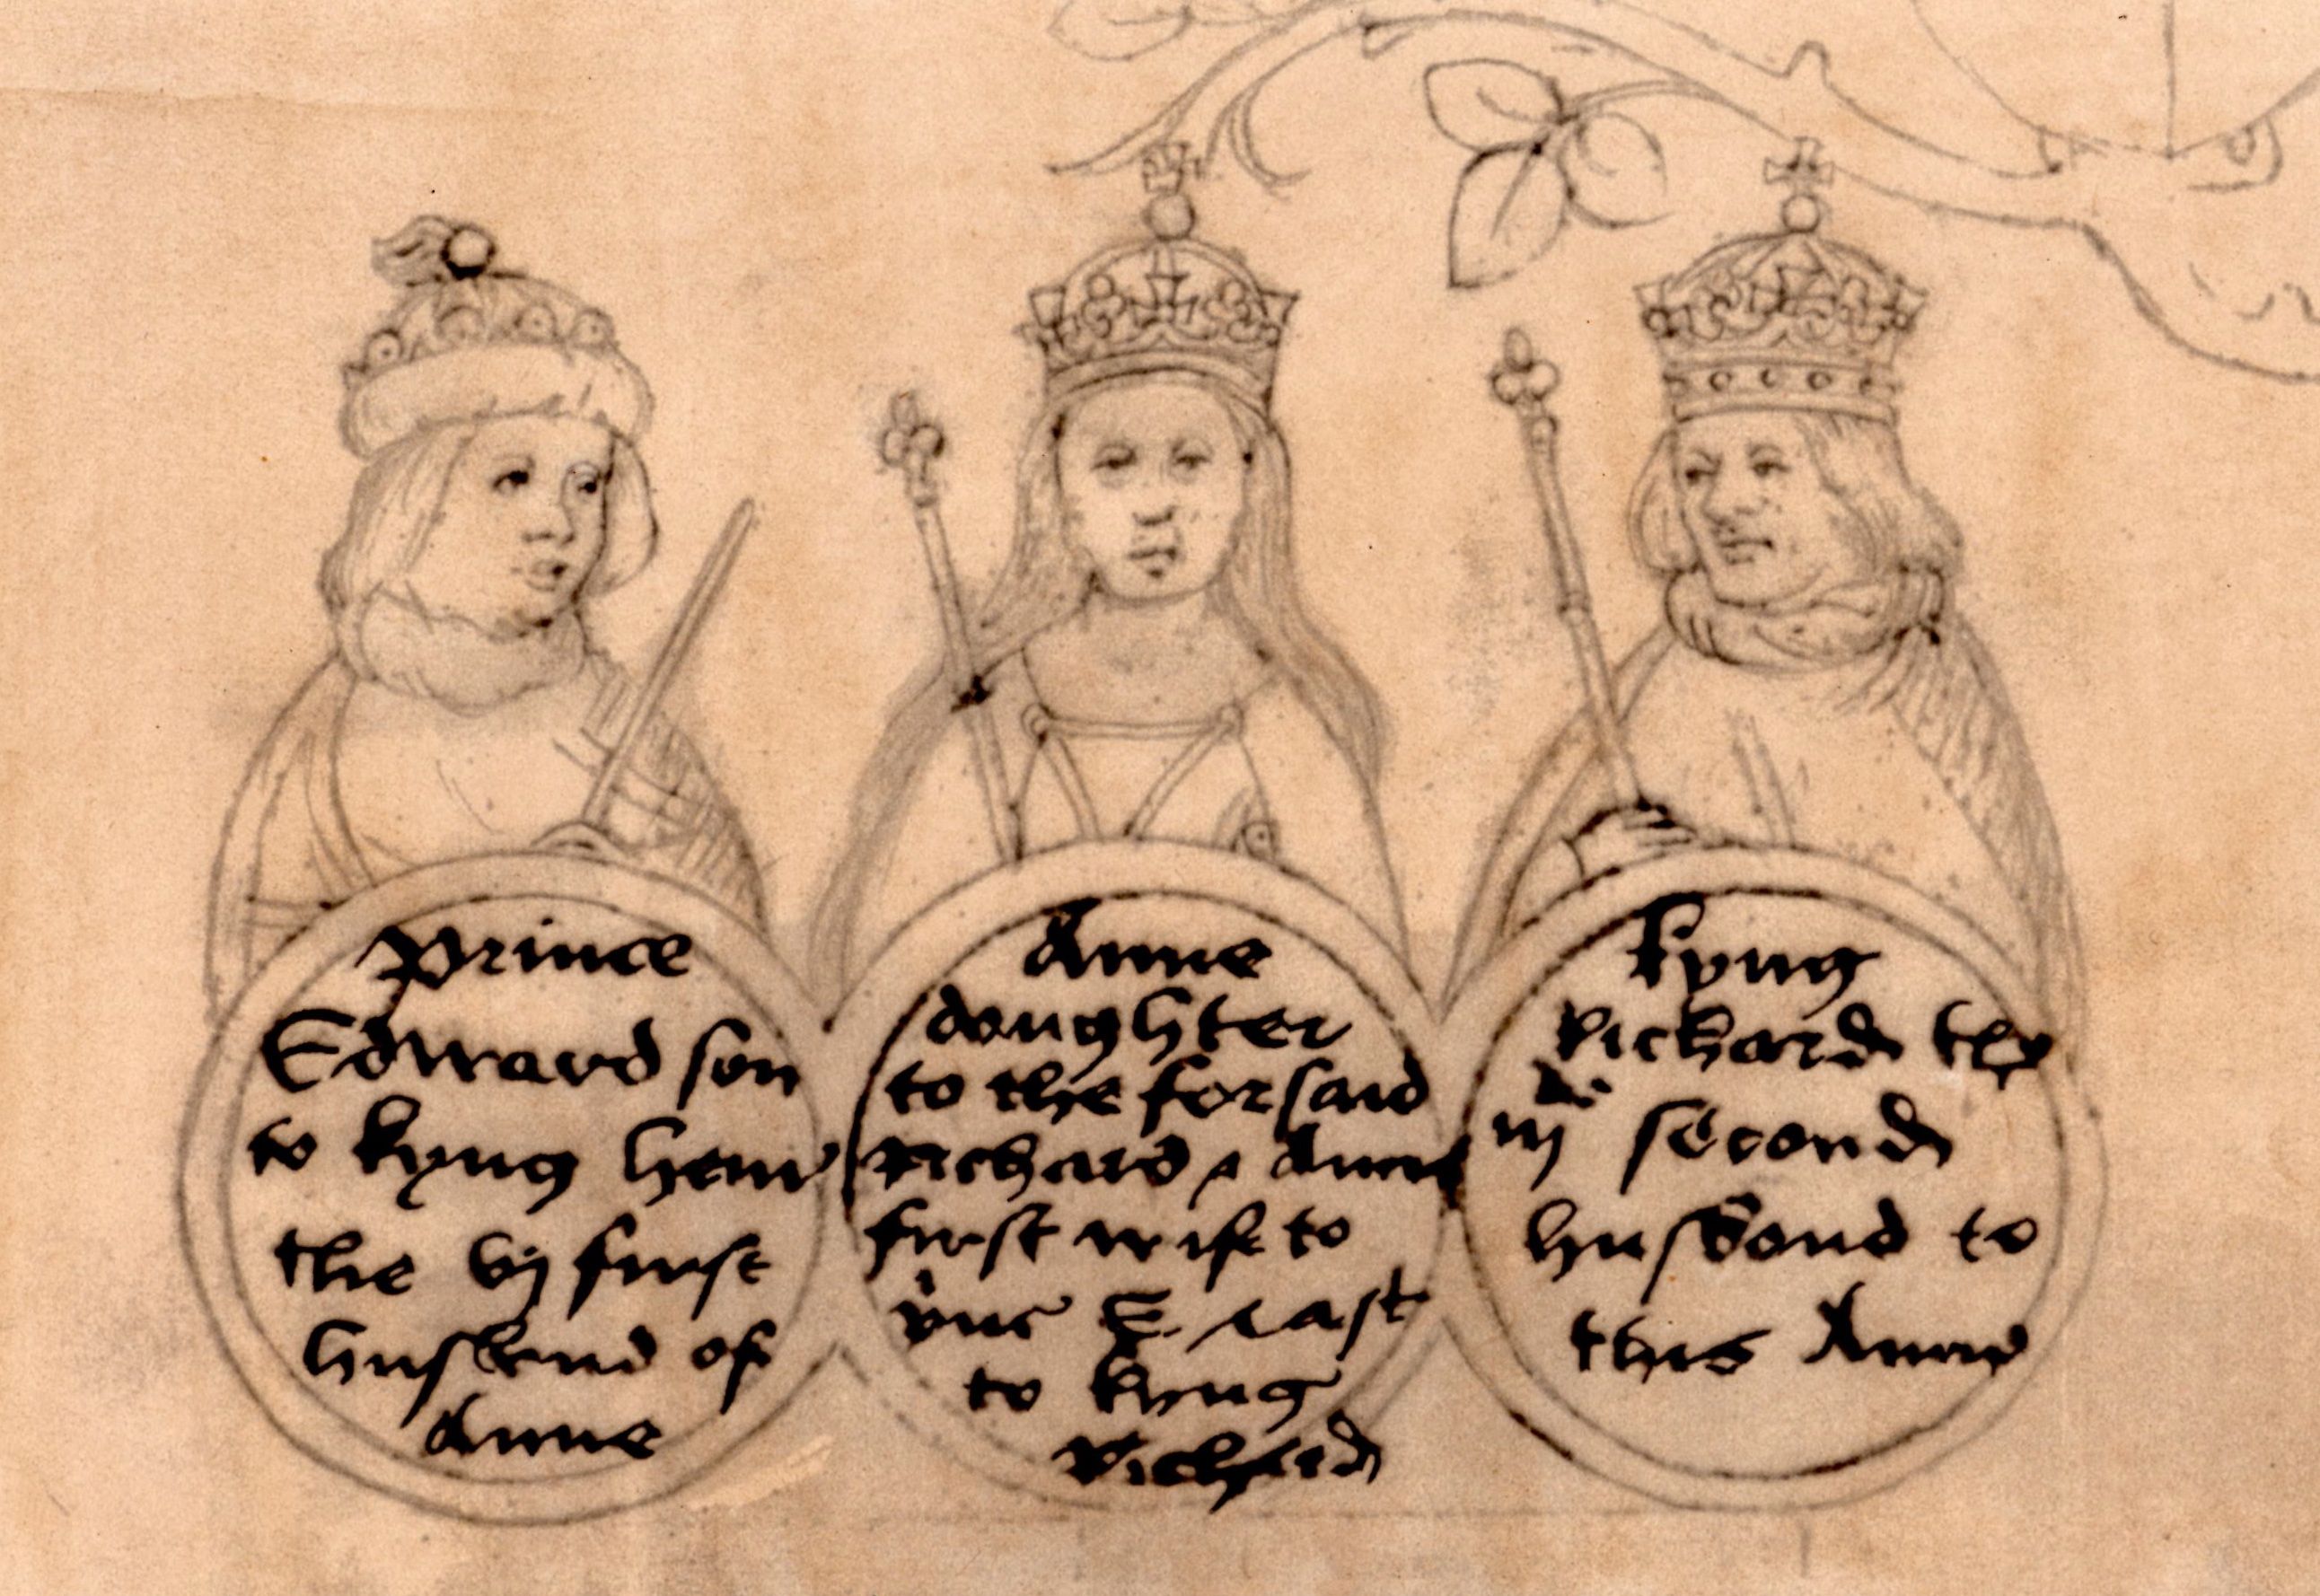 prince
Edward son
to kyng henr
the vj first
husband of
Anne
Anne
doughter
to the forsaid
Richard & Anne
first wife to
E. last
to kyng
Richard
kyng
Richard the
iij second
husbond to
this Anne